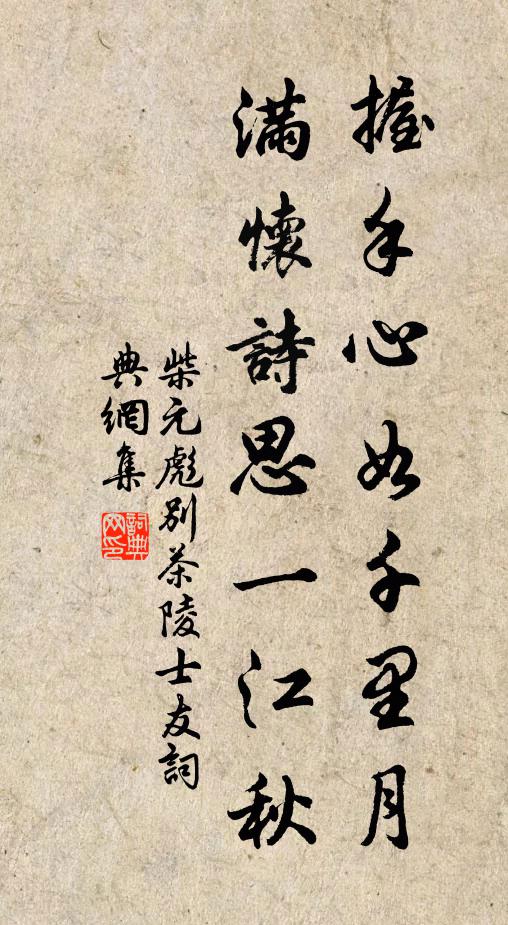 握手心如千里月
滿懷詩思一江秋
柴元彪別茶陵士友詞
典網集
詞典
网印